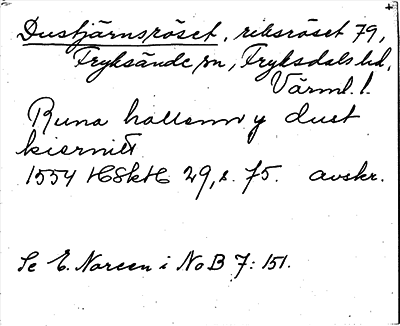 Dustjärnsröset, riksröset 79,
Fryksände sn, Fryksdals hd,
Värml. l.
Runa hallenn y dust
kiernitt
1554 HSkH 29, s. 75. avskr.
Se E. Noreen i NoB 7:151.